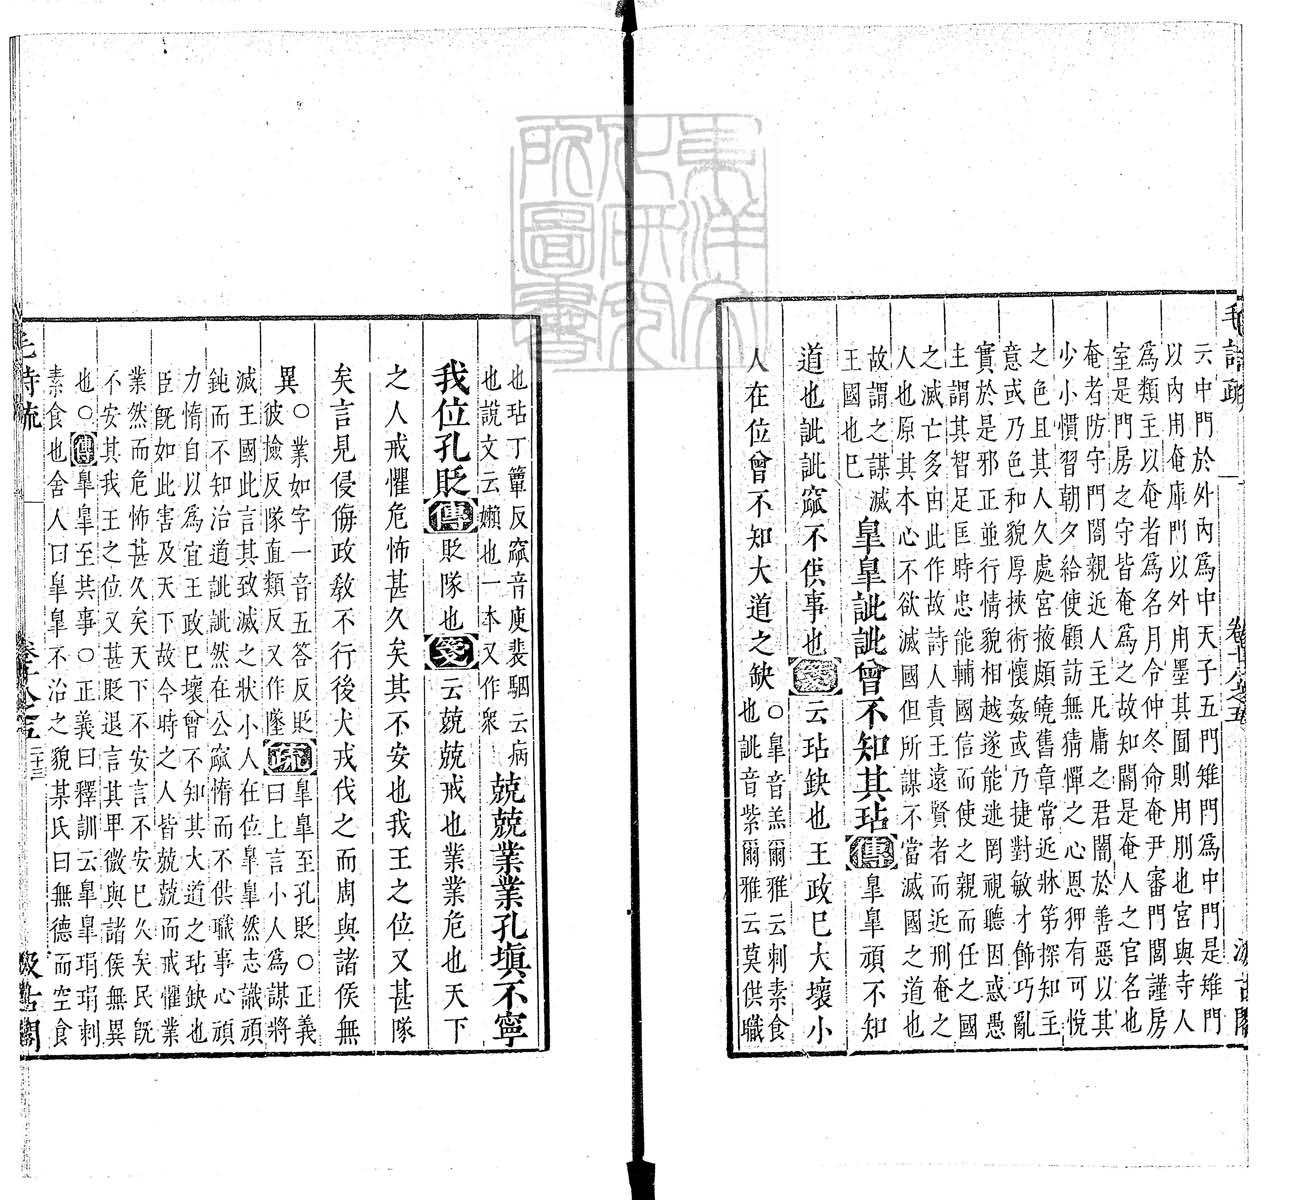 云中門於外內爲中天子五門雉門爲中門是雉門
以內用奄庫門以外用墨其囿則用刖也宮與寺人
爲類主以奄者爲名月令仲冬命奄尹審門閭謹房
室是門房之守皆奄爲之故知閽是奄人之官名也
奄者防守門閤親近人主凡庸之君闇於善惡以其
少小慣習朝夕給使顧訪無猜憚之心恩狎有可悅
之色且其人久處宮掖頗曉舊章常近牀笫探知主
意或乃色和貌厚挾術懷姦或乃捷對敏才飾巧亂
實於是邪正並行情貌相越遂能迷罔視聽因惑愚
主謂其智足匡時忠能輔國信而使之親而任之國
之滅亡多由此作故詩人責王遠賢者而近刑奄之
人也原其本心不欲滅國但所謀不當滅國之道也
故謂之謀滅
王國也巳
皐皐訿訿曾不知其玷傳皐皐頑不知
道也訿訿窳不供事也箋云玷缺也王政巳大壞小
人在位曾不知大道之缺
○皐音羔爾雅云刺素食
也訿音紫爾雅云莫供職
也玷丁簟反窳音庾裴駰云病
也說文云嬾也一本又作衆
兢兢業業孔塡不寧
我位孔貶傳貶隊也箋云兢兢戒也業業危也天下
之人戒懼危怖甚久矣其不安也我王之位又甚隊
矣言見侵侮政敎不行後犬戎伐之而周與諸侯無
異
○業如字一音五答反貶
彼檢反隊直類反又作墜
疏
皐皐至孔貶○正義
曰上言小人爲謀將
滅王國此言其致滅之狀小人在位皐皐然志識頑
鈍而不知治道訿訿然在公窳惰而不供職事心頑
力惰自以爲宜王政巳壞曾不知其大道之玷缺也
臣旣如此害及天下故今時之人皆兢兢而戒懼業
業然而危怖甚久矣天下不安言不安巳久矣民旣
不安其我王之位又甚貶退言其卑微與諸侯無異
也○傳皐皐至共事○正義曰釋訓云皐皐琄琄刺
素食也舍人曰皐皐不治之貌某氏曰無德而空食
毛詩疏
卷十八之五
二十三
汲古閣